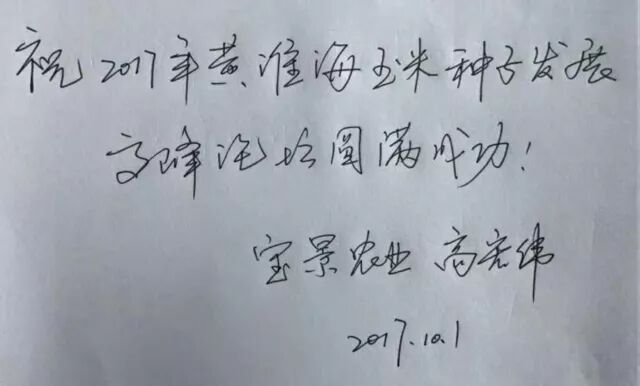 祝2017年黄淮海玉米种子发展
高峰论坛圆满成功!
宝景农业 高宏伟
2017.10.1